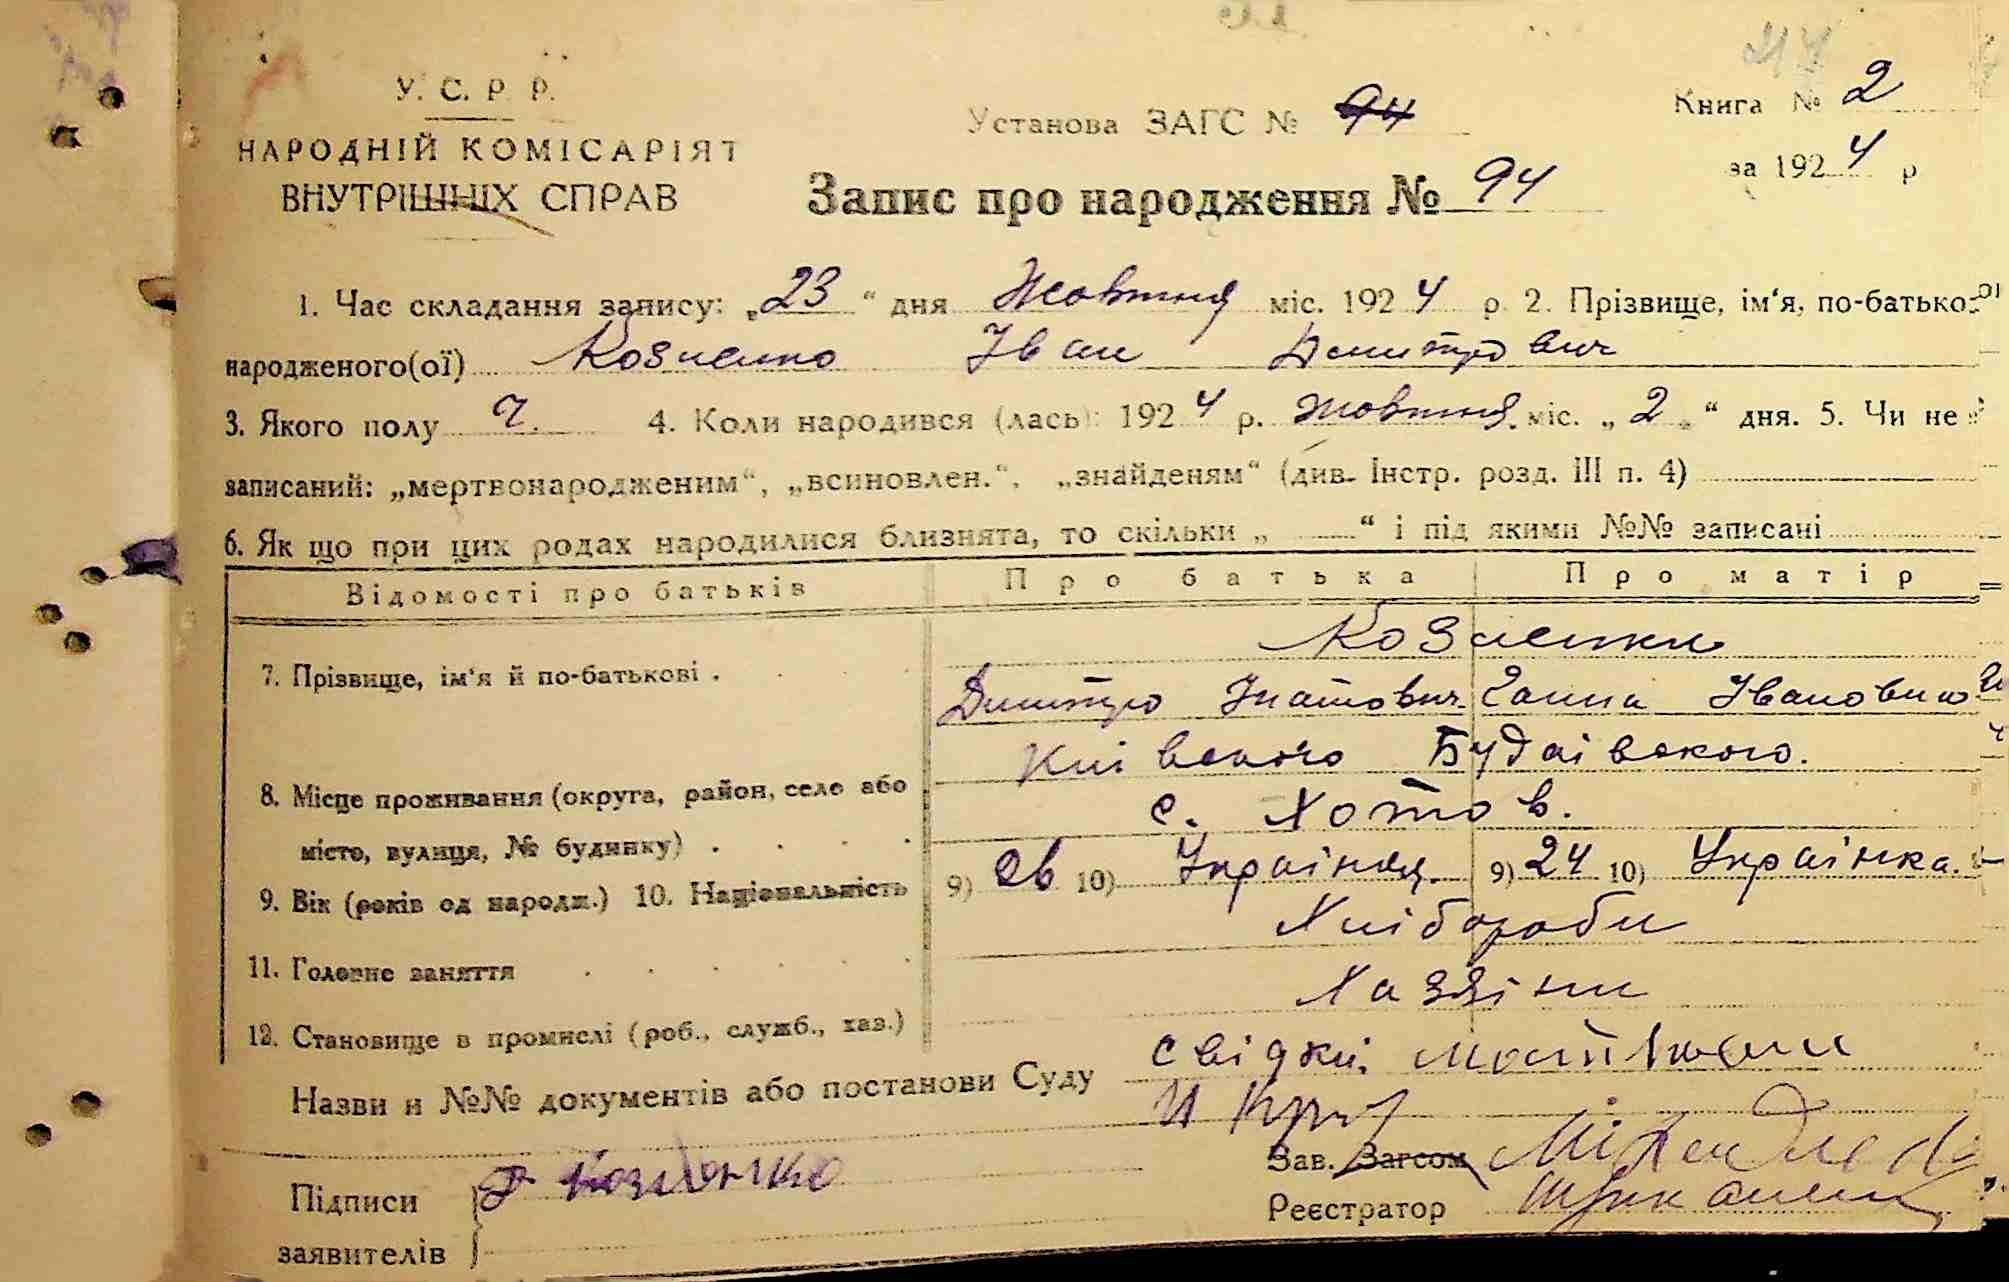 У. С. Р. Р.
НАРОДНІЙ КОМІСАРІЯТ
ВНУТРІШНІХ СПРАВ
Установа ЗАГС № 94
Книга № 2
за 1924 р
Запис про народження № 94
1. Час складання запису: „23“ дня Жовтня міс. 1924 р. 2. Прізвище, ім‘я, по-батькові
народженого(ої) Козленко Іван Дмитрович
3. Якого полу Ч. 4. Коли народився (лась): 1924 р. жовтня міс. „2“ дня. 5. Чи не
записаний: „мертвонародженим“, „всиновлен.“, „знайденям“ (див. Інстр. розд. III п. 4)
6. Як що при цих родах народилися близнята, то скільки „ “ і під якими №№ записані
Відомості про батьків Про батька Про матір
7. Прізвище, ім‘я й по-батькові . Козленки
Дмитро Гнатович Ганна Івановна
8. Місце проживання (округа, район, село або Київського Будаівського.
місто, вулиця, № будинку) с. Хотов.
9. Вік (років од народж.) 10. Національність 9) 26 10) Українця. 9) 24 10) Українка.
11. Головне заняття Хлібороби
12. Становище в промислі (роб., служб., хаз.) Хазяіни
Назви й №№ документів або постанови Суду свідки
Зав. Загсом
Підписи Козленко
Реєстратор
заявителів